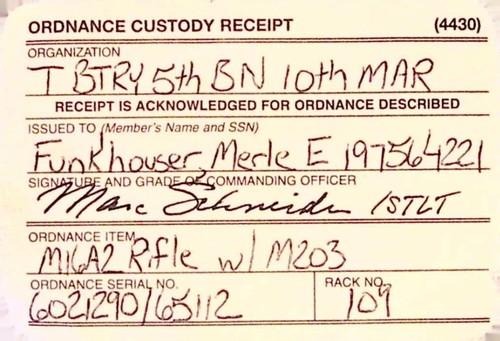 ORDNANCE CUSTODY RECEIPT (4430)
ORGANIZATION
T BTRY 5th BN 10th MAR
RECEIPT IS ACKNOWLEDGED FOR ORDNANCE DESCRIBED
ISSUED TO (Member's Name and SSN)
Funkhouser, Merle E 197564221
SIGNATURE AND GRADE OF COMMANDING OFFICER
Marc Schneider 1STLT
ORDNANCE ITEM
M16A2 Rifle w/ M203
ORDNANCE SERIAL NO. RACK NO.
6021290/65112 109